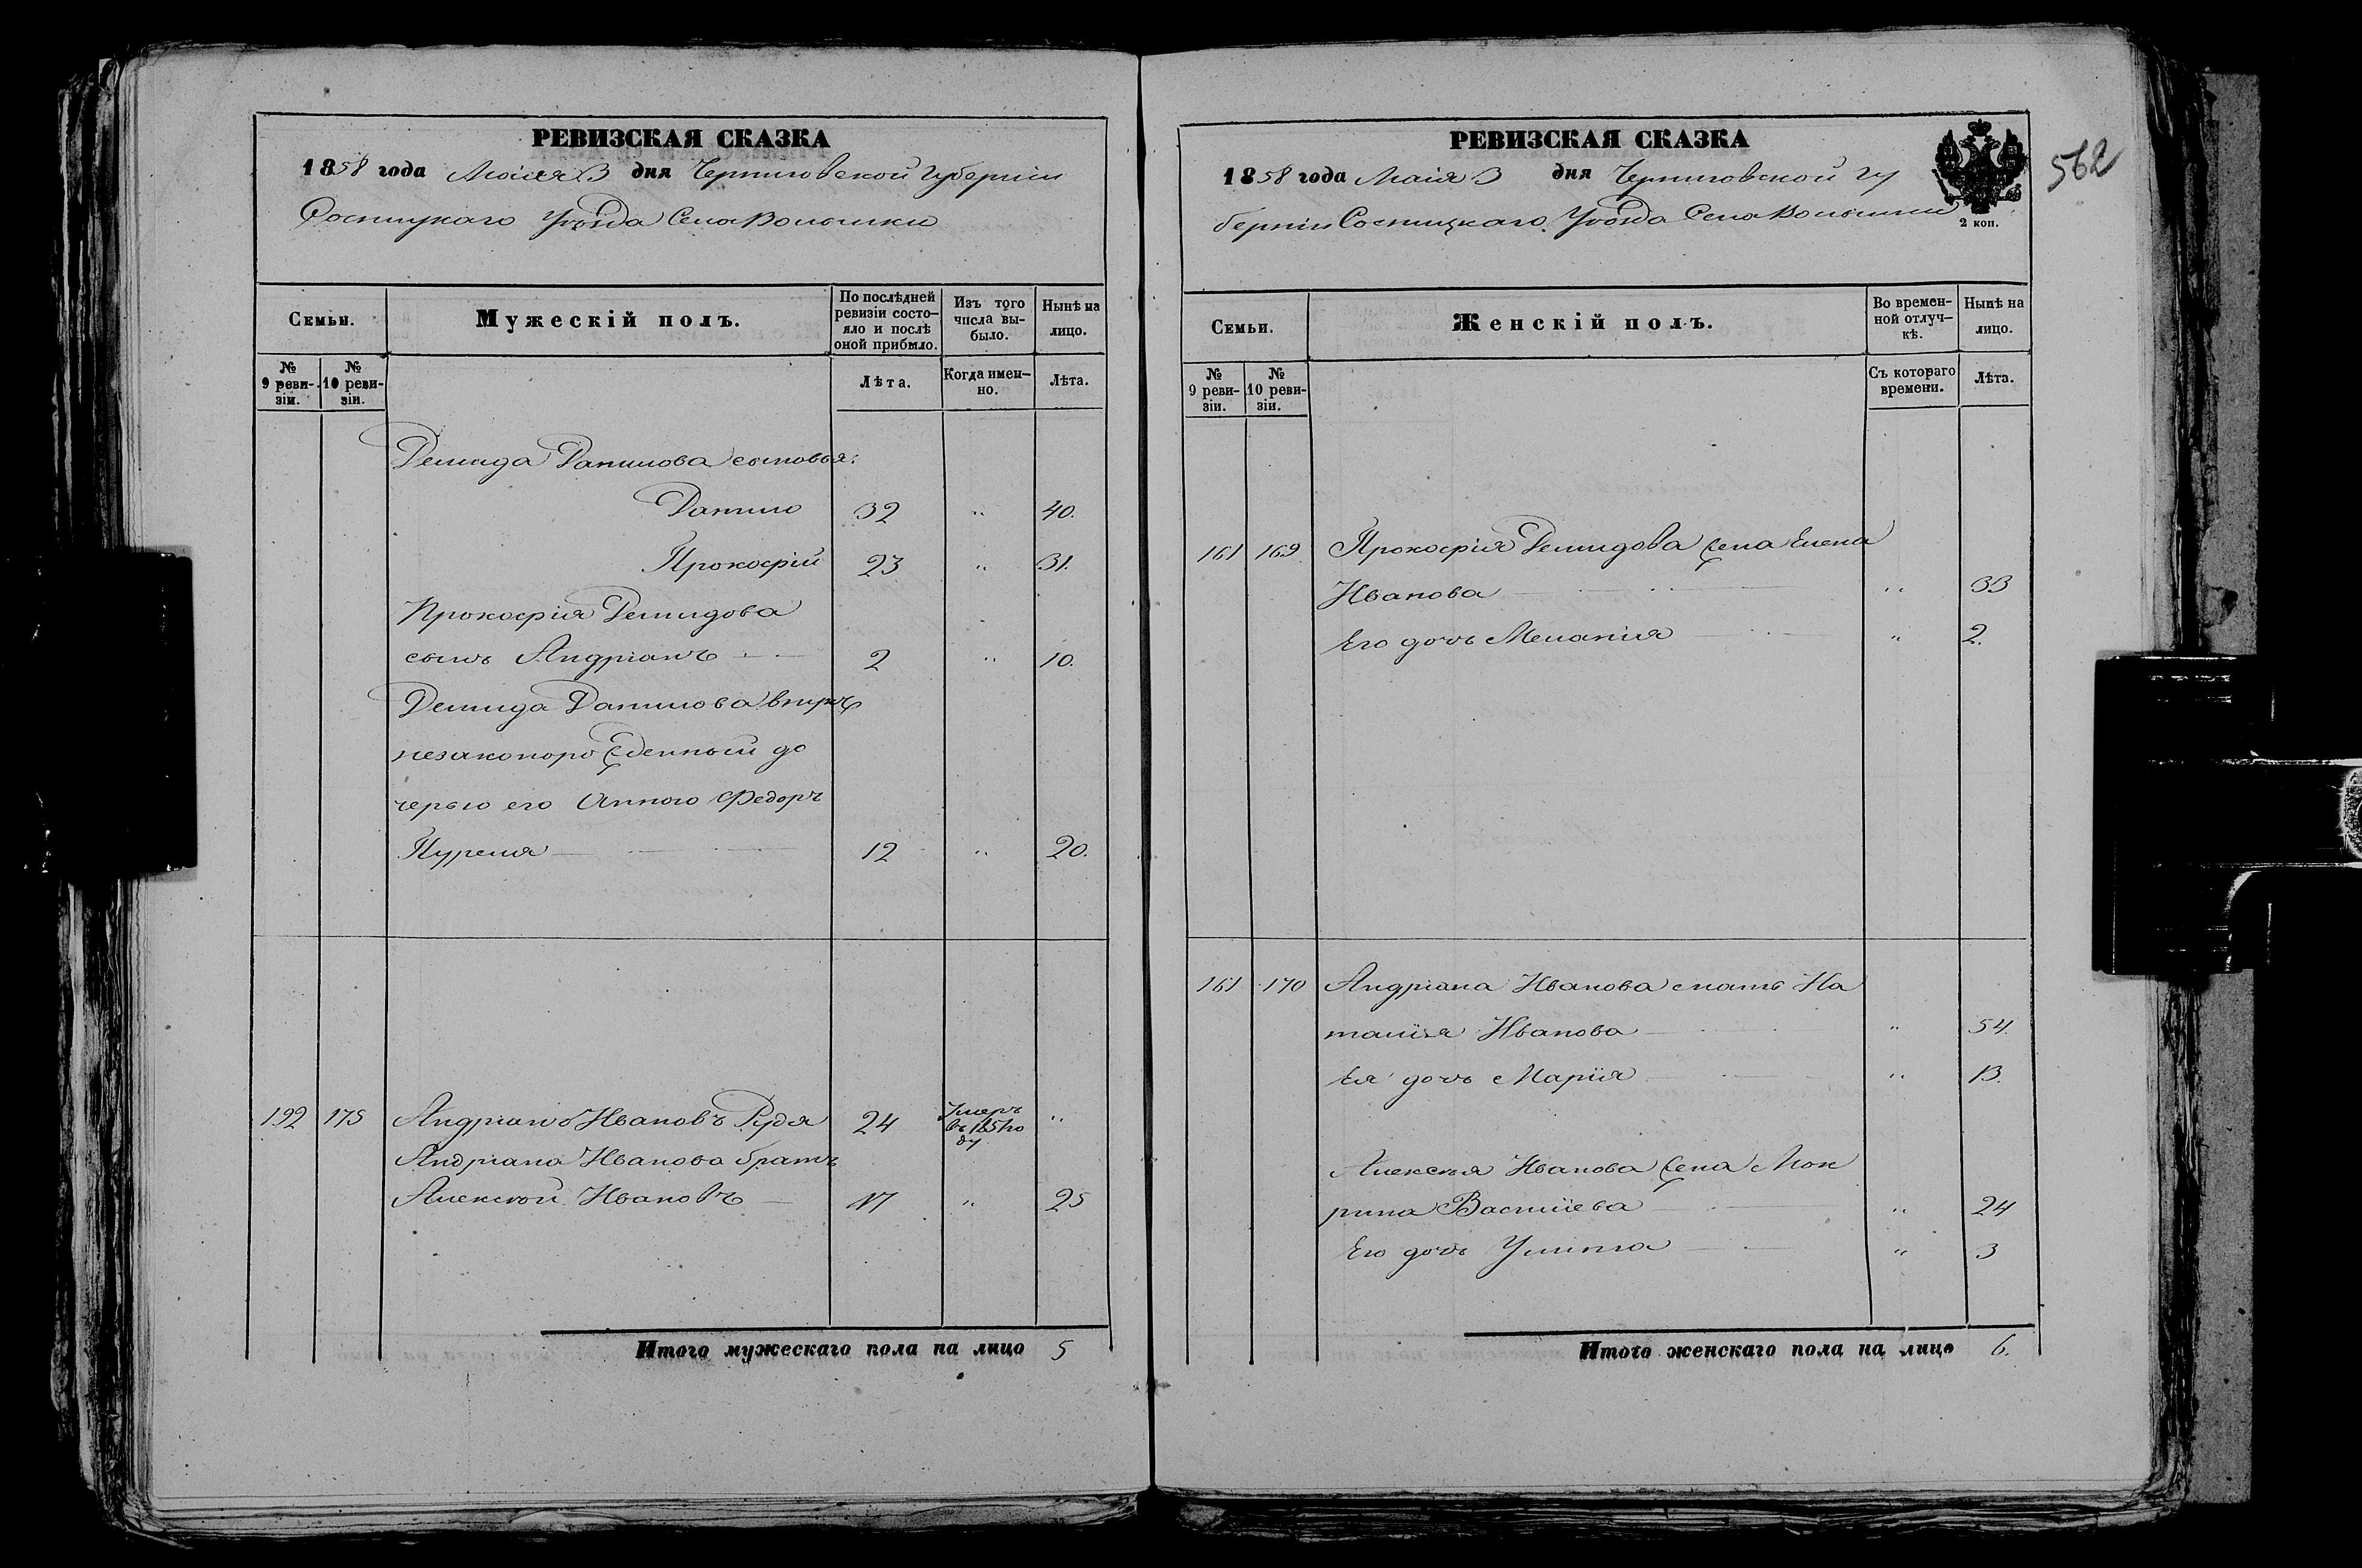 РЕВИЗСКАЯ СКАЗКА
1858 года Маія 3 дня Черниговской Губерніи
Сосницкаго Уѣзда Села Волынки
Семьи.
Мужескій полъ.
По послѣдней ревизіи состояло и послѣ оной прибыло.
Изъ того числа выбыло.
Нынѣ на лицо.
№ 9 ревизіи.
№ 10 ревизіи.
Лѣта.
Когда именно.
Лѣта.
Демида Данилова сыновья:
Данило 32 " 40.
Прокофій 23 " 31.
Прокофія Демидова
сынъ Андріанъ 2 " 10.
Демида Данилова внукъ
незаконорожденный до
черью его Анною Федоръ
12 " 20.
192 175 Андріанъ Ивановъ Рудя 24 Умеръ въ 1851 году "
Андріана Иванова братъ
Алексѣй Ивановъ 17 " 25
Итого мужескаго пола на лицо 5
РЕВИЗСКАЯ СКАЗКА
562
1858 года Маія 3 дня Черниговской Гу
берніи Сосницкаго Уѣзда Села Волынки
2 коп.
Семьи.
Женскій полъ.
Во временной отлучкѣ.
Нынѣ на лицо.
№ 9 ревизіи.
№ 10 ревизіи.
Съ котораго времени.
Лѣта.
161 169 Прокофія Демидова жена Елена
Иванова " 33
Его дочь Меланія " 2.
161 170 Андріана Иванова мать На
талія Иванова " 54.
Ея дочь Марія " 13.
Алексѣя Иванова жена Мок
рина Василіева " 24
Его дочь Улита " 3
Итого женскаго пола на лицо 6.